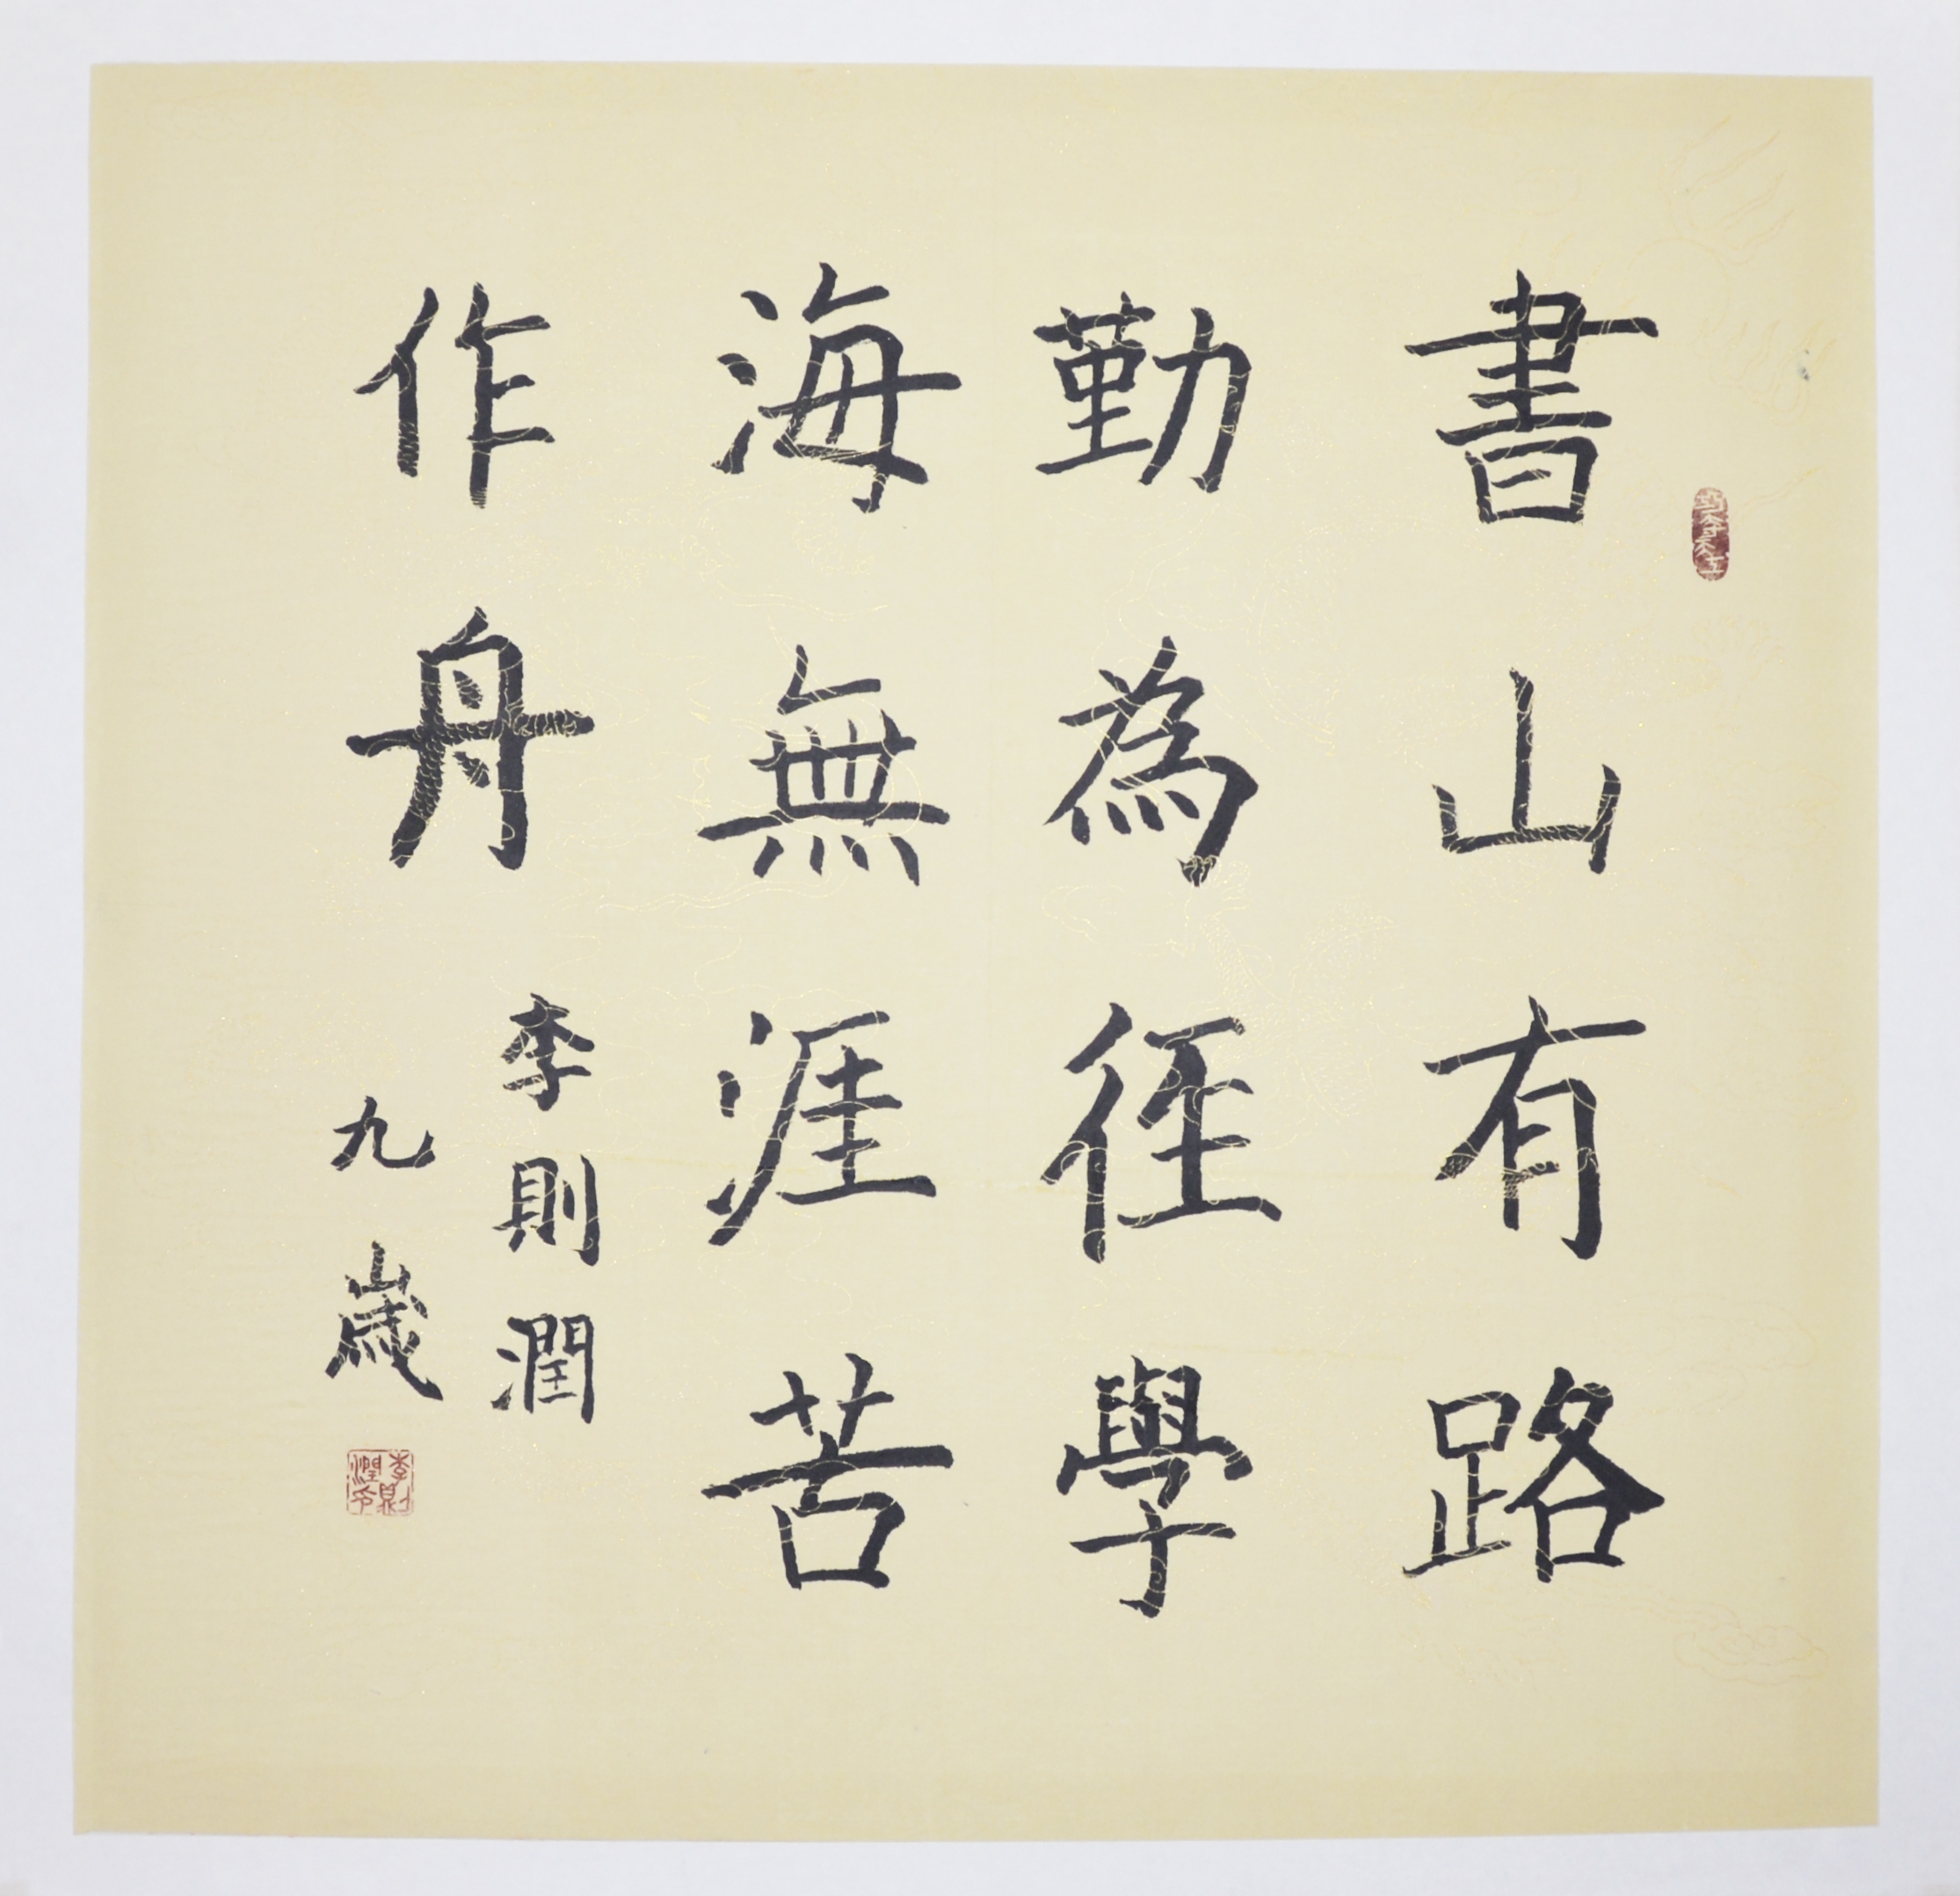 書山有路
勤為徑學
海無涯苦
作舟
李則潤
九歲